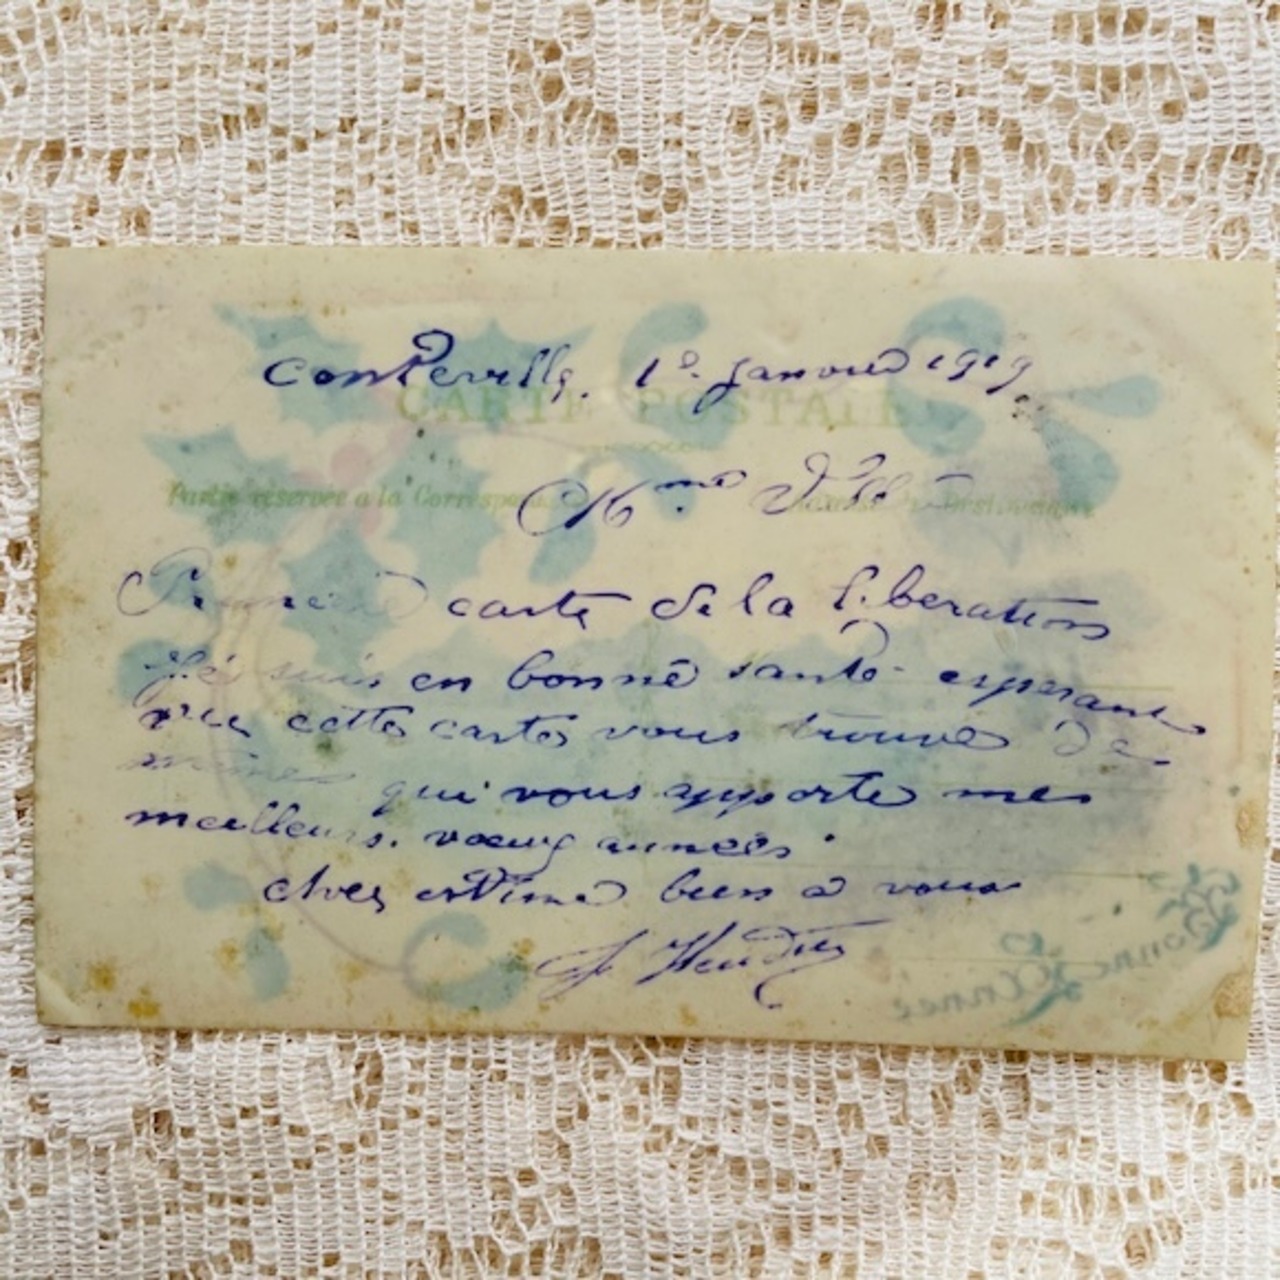 Conteville, 1e. Janvier 1919
CARTE POSTALE
Partie réservée à la Correspondance
Mme
Premiere carte de la liberation
Je suis en bonne santé esperant
que cette carte vous trouve de
même qui vous apporte mes
meilleurs. voeux année
estime bien a vous
Bonne
Année